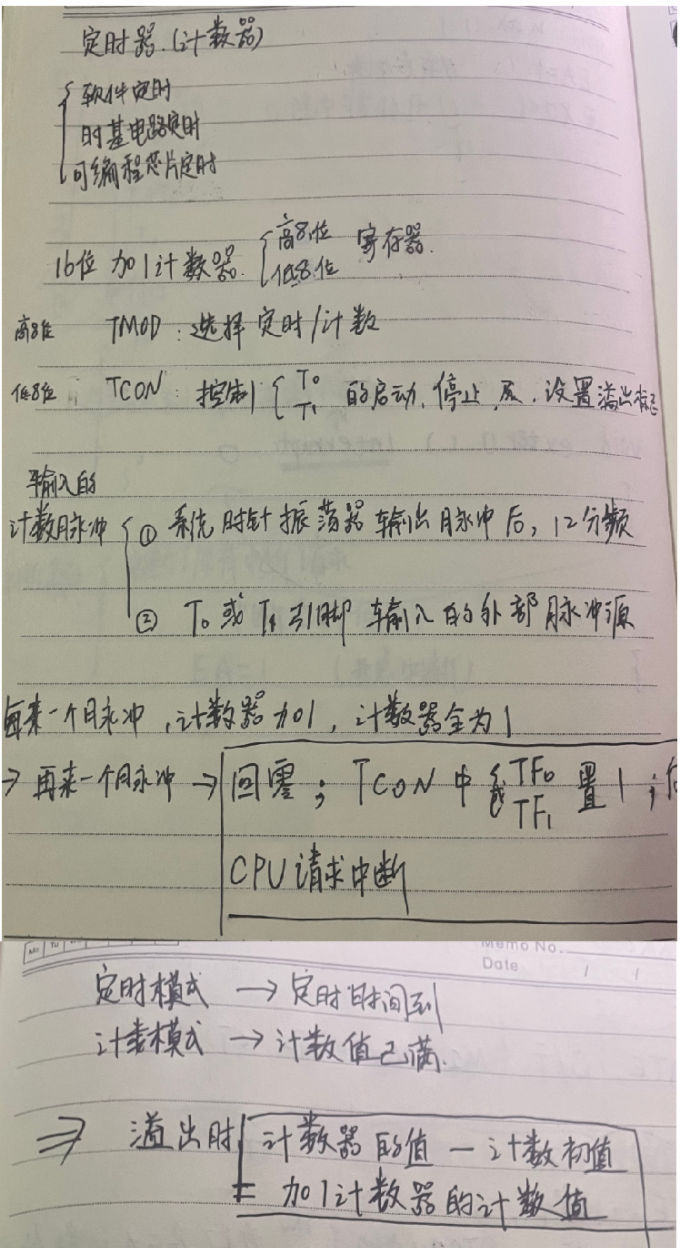 定时器.(计数器)
软件定时
时基电路定时
可编程芯片定时
16位 加1计数器. 高8位 低8位 寄存器.
高8位 TMOD:选择定时/计数
低8位 TCON:控制 T0 T1 的启动、停止及、设置溢出标志
输入的
计数脉冲 ① 系统时钟振荡器输出脉冲后,12分频
② T0或T1引脚输入的外部脉冲源
每来一个脉冲,计数器加1,计数器全为1
→ 再来一个脉冲 → 回零;TCON中 TF0 或 TF1 置1;向
CPU请求中断
Memo No.
Date / /
定时模式 → 定时时间到
计数模式 → 计数值已满.
⇒ 溢出时 计数器的值 — 计数初值
= 加1计数器的计数值